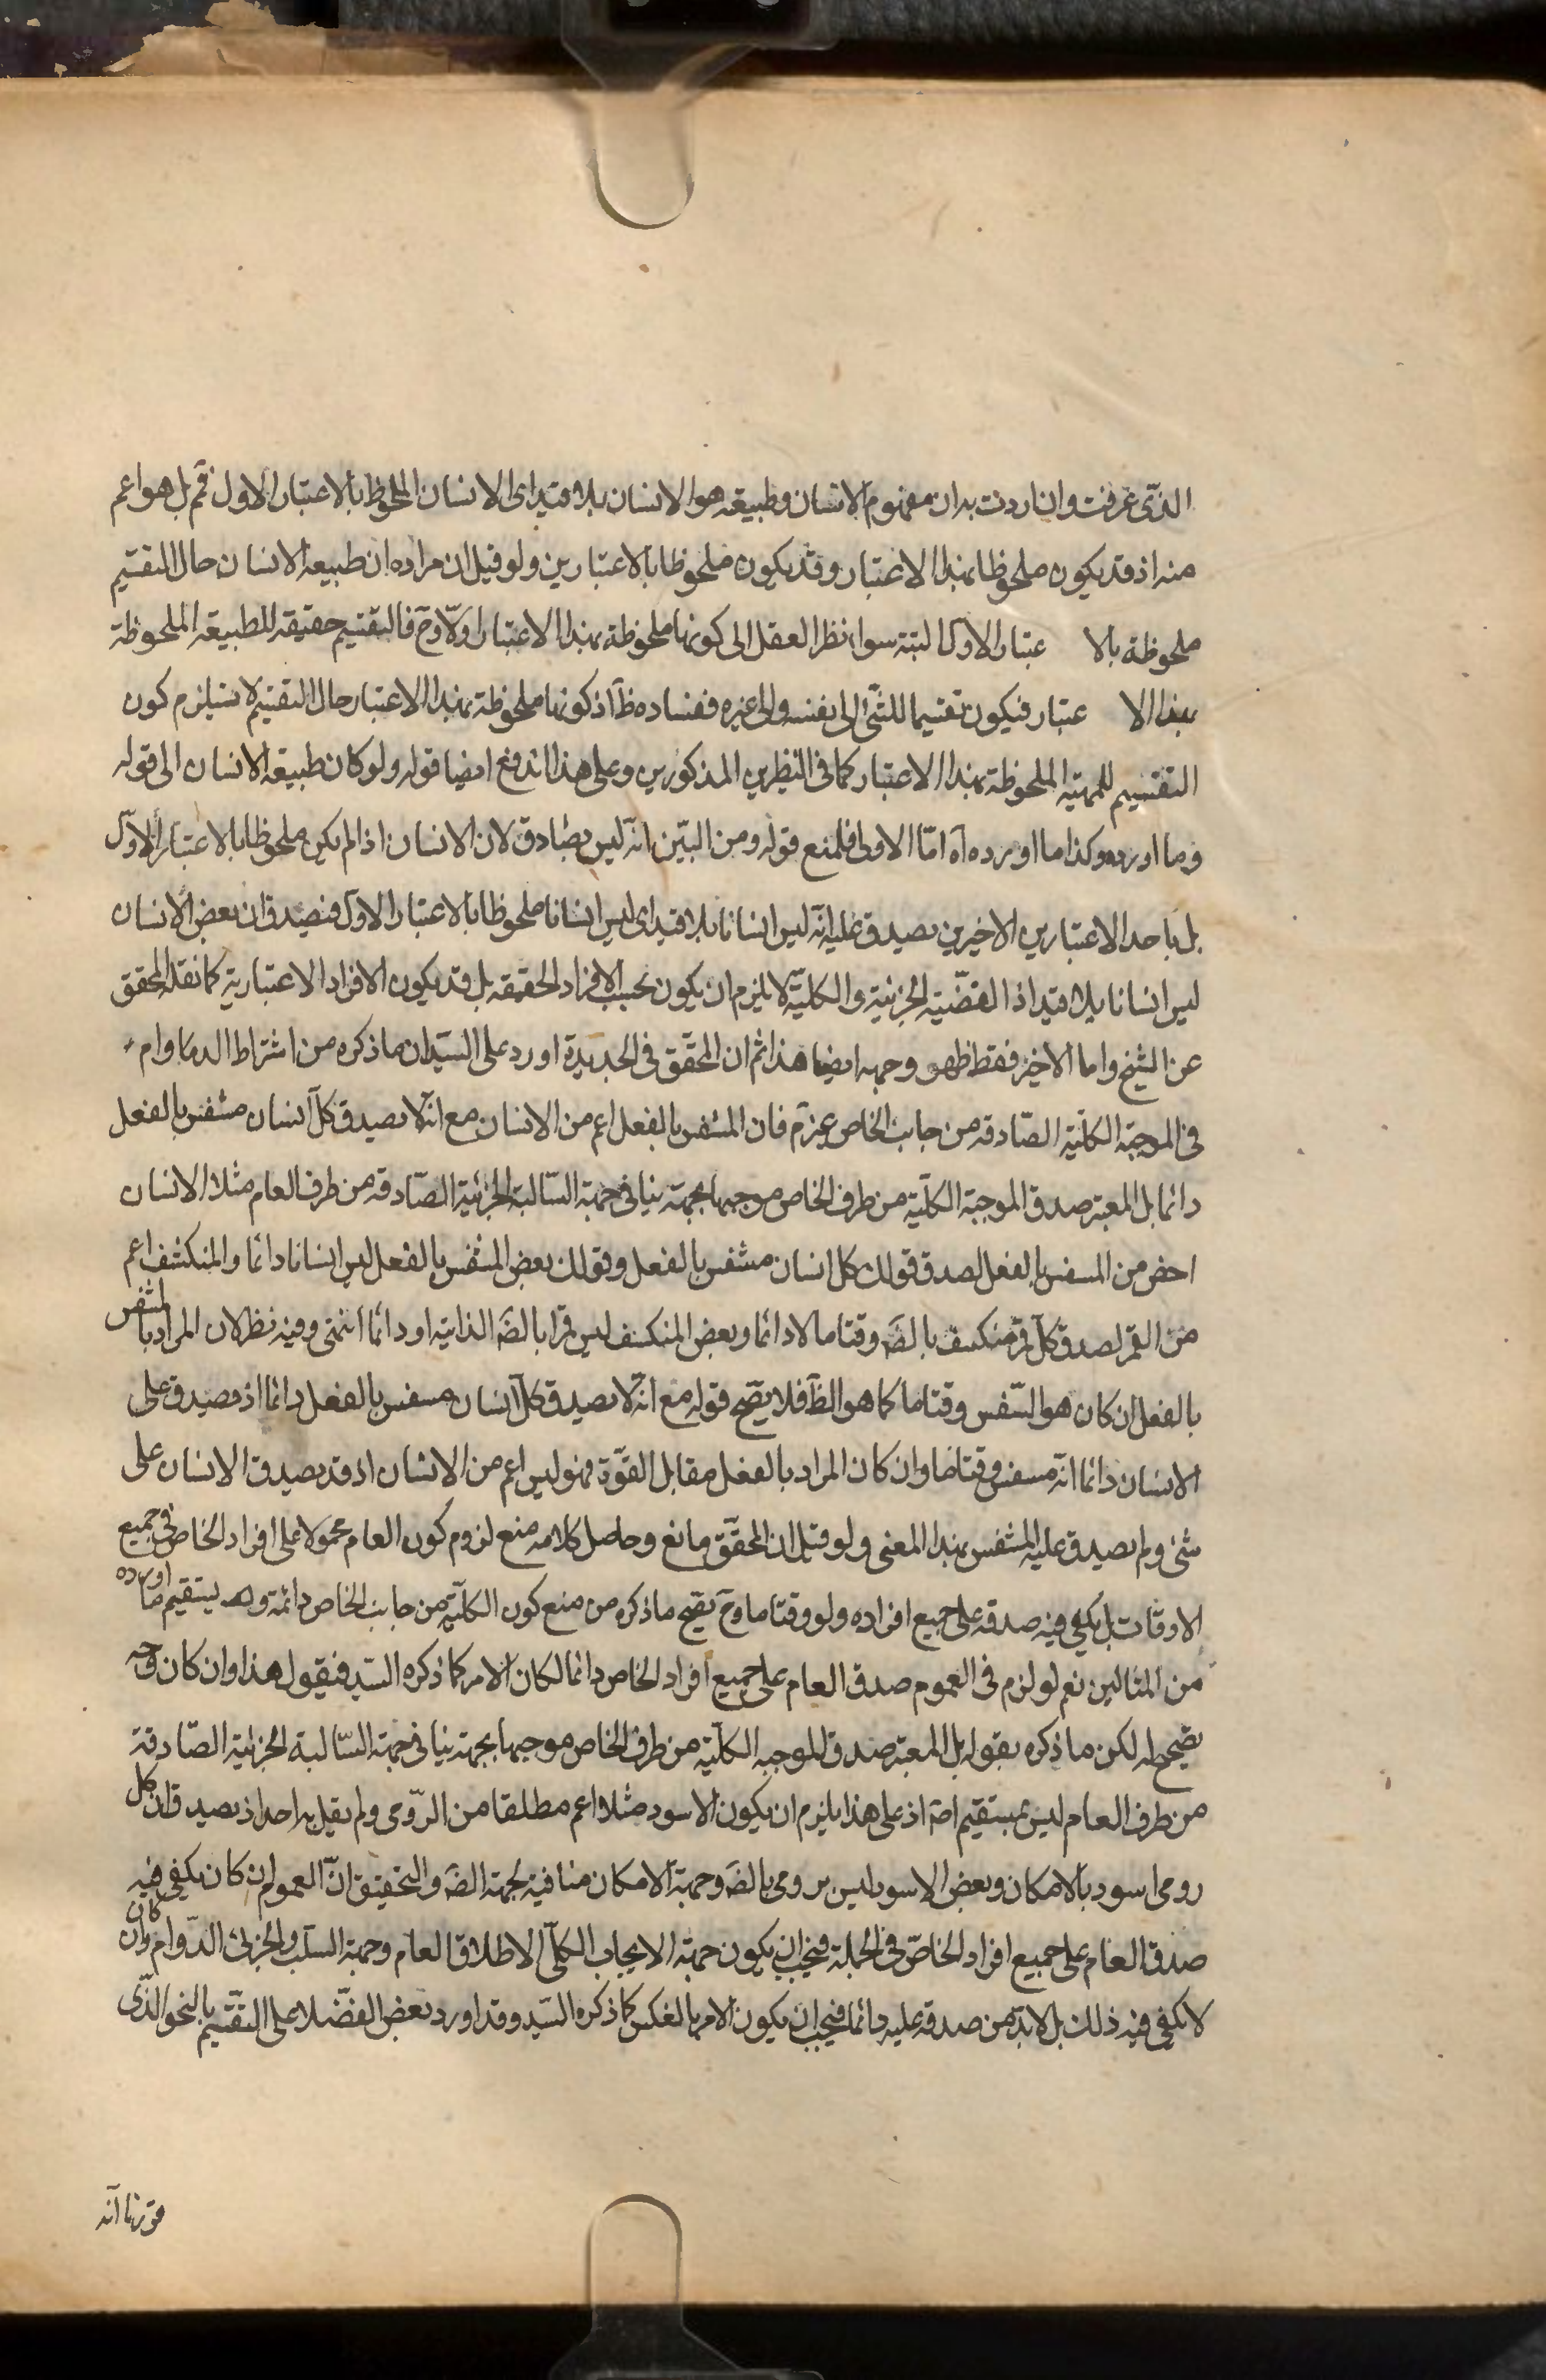 الذی عرفت وان اردت به ان مفهوم الانسان وطبیعته هو الانسان بلا قید ای الانسان الملحوظ بالاعتبار الاول فمم بل هو اعم
منه اذ قد یکون ملحوظا بهذا الاعتبار وقد یکون ملحوظا بالاعتبارین ولو قیل ان مراده ان طبیعة الانسان حال التقسیم
ملحوظة بالا عتبار الاول البتة سواء نظر العقل الی کونها ملحوظة بهذا الاعتبار اولا وح فالتقسیم حقیقة للطبیعة الملحوظة
بهذا الا عتبار فیکون تقسیما للشئ الی نفسه والی غیره ففساده ظ اذ کونها ملحوظة بهذا الاعتبار حال التقسیم لا یستلزم کون
التقسیم للمهیة الملحوظة بهذا الاعتبار کما فی النظرین المذکورین وعلی هذا اندفع ایضا قوله ولو کان طبیعة الانسان الی قوله
وما اورده وکذا ما اورده آه امّا الاولی فلمنع قوله ومن البیّن انّه لیس بصادق لان الانسان اذا لم یکن ملحوظا بالاعتبار الاوّل
بل باحد الاعتبارین الاخیرین یصدق علیه انّه لیس انسانا بلا قید ای لیس انسانا ملحوظا بالاعتبار الاول فیصدق ان بعض الانسان
لیس انسانا بلا قید اذ القضیّة الجزئیة والکلیّة لا یلزم ان یکون بحسب الافراد الحقیقة بل قد یکون الافراد الاعتباریة کما نقله المحقق
عن الشیخ واما الاخیر فقط ظهو وجهه ایضا هذا ثم ان المحقّق فی الجدیدة اورد علی السیّد ان ما ذکره من اشتراط الدما وام
فی الموجبة الکلّیة الصّادقه من جانب الخاص غیر م فان المتنفس بالفعل اعم من الانسان مع انّه لا یصدق کلّ انسان متنفس بالفعل
دائما بل المعتبر صدق الموجبة الکلّیة من طرف الخاص موجهها بجهة ینافی جهة السّالبة الجزئیة الصّادقه من طرف العام مثلا الانسان
اخص من المتنفس بالفعل لصدق قولک کل انسان متنفس بالفعل وقولک بعض المتنفس بالفعل لیس انسانا دائما والمنکسف اعم
من القمر لصدق کلّ قمر منکسف بالضَ وقتا ما لا دائما وبعض المنکسف لیس قمرا بالضَ الذاتیه او دائما انتهی وفیه نظر لان المراد بالمتنفس
بالفعل ان کان هو التنفس وقتا ما کما هو الظ فلا یصح قوله مع انّه لا یصدق کلّ انسان متنفس بالفعل دائما اذ یصدق علی
الانسان دائما انّه متنفس وقتا ما وان کان المراد بالفعل مقابل القوّة فهو لیس اعم من الانسان اذ قد یصدق الانسان علی
شئ ولم یصدق علیه المتنفس بهذا المعنی ولو قیل ان المحقّق مانع وحاصل کلامه منع لزوم کون العام محمولا علی افراد الخاص فی جمیع
الاوقات بل یکفی فیه صدقه علی جمیع افراده ولو وقتا ما وح یصح ما ذکره من منع کون الکلّیة من جانب الخاص دائمة و یستقیم ما اورده
من المثالین نعم لو لزم فی العموم صدق العام علی جمیع افراد الخاص دائما لکان الامر کما ذکره السیّد فیقول هذا وان کان وجه
یصح له لکن ما ذکره بقوله بل المعتبر صدق الموجبه الکلّیة من طرف الخاص موجهها بجهة ینافی جهة السّالبة الجزئیة الصّادقة
من طرف العام لیس بمستقیم اصَ اذ علی هذا یلزم ان یکون الاسود مثلا اعم مطلقا من الرّومی ولم یقل به احد اذ یصدق ان کل
رومی اسود بالامکان وبعض الاسود لیس برومی بالضَ وجهة الامکان منافیة لجهة الضَ والتحقیق انّ العموم ان کان یکفی فیه
صدق العام علی جمیع افراد الخاصّ فی الجملة فیجب ان یکون جهة الایجاب الکلّی الاطلاق العام وجهة السّلب الجزئی الدّوام وان کان
لا یکفی فیه ذلک بل لا بدّ من صدقه علیه دائما فیجب ان یکون الامر بالعکس کما ذکره السّید وقد اورد بعض الفضلا علی التقسیم بالنحو الذّی
قررنا انه